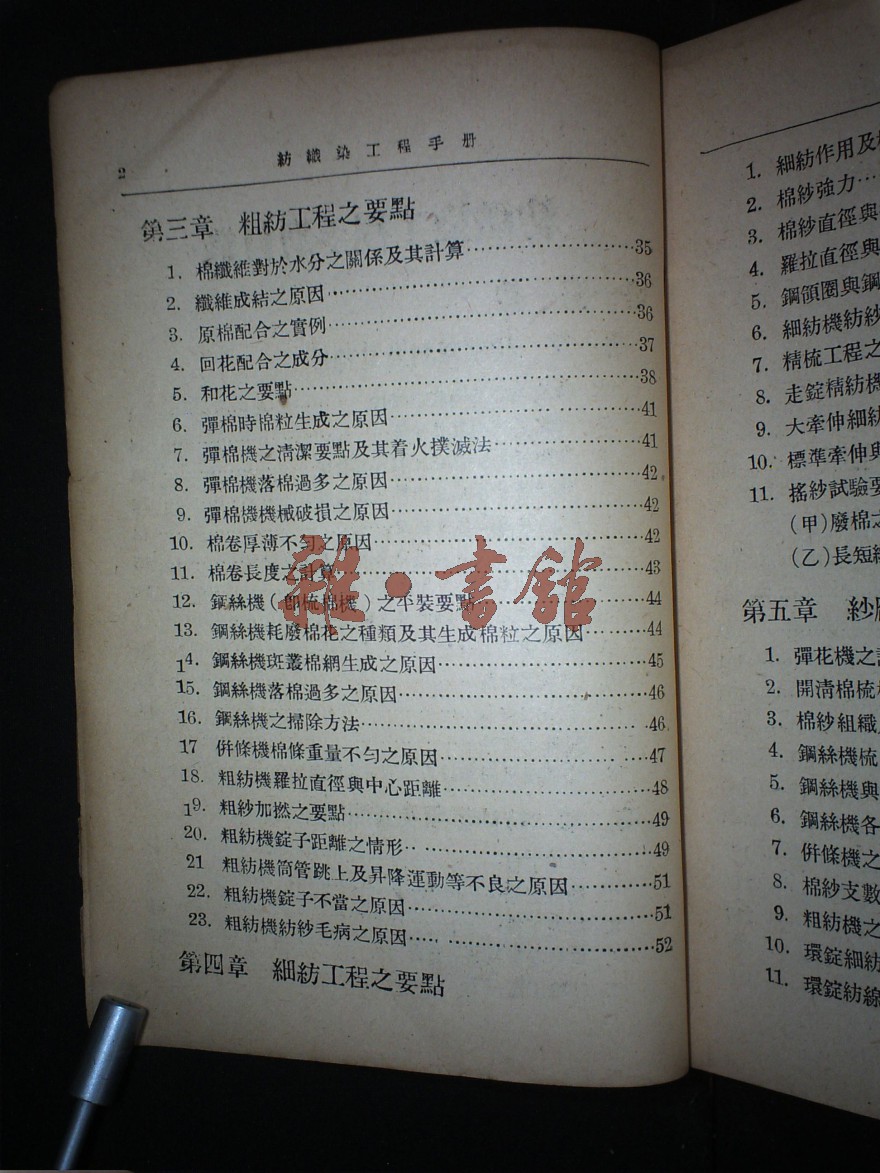 2
紡織染工程手册
第三章 粗紡工程之要點
1. 棉纖維對於水分之關係及其計算 35
2. 纖維成結之原因 36
3. 原棉配合之實例 36
4. 回花配合之成分 37
5. 和花之要點 38
6. 彈棉時棉粒生成之原因 41
7. 彈棉機之淸潔要點及其着火撲滅法 41
8. 彈棉機落棉過多之原因 42
9. 彈棉機機械破損之原因 42
10. 棉卷厚薄不匀之原因 42
11. 棉卷長度之計算 43
12. 鋼絲機(卽梳棉機)之平裝要點 44
13. 鋼絲機耗廢棉花之種類及其生成棉粒之原因 44
14. 鋼絲機斑叢棉網生成之原因 45
15. 鋼絲機落棉過多之原因 46
16. 鋼絲機之掃除方法 46
17 併條機棉條重量不匀之原因 47
18. 粗紡機羅拉直徑與中心距離 48
19. 粗紗加撚之要點 49
20. 粗紡機錠子距離之情形 49
21 粗紡機筒管跳上及昇降運動等不良之原因 51
22. 粗紡機錠子不當之原因 51
23. 粗紡機紡紗毛病之原因 52
第四章 細紡工程之要點
雜·書館
1. 細紡作用及
2. 棉紗強力
3. 棉紗直徑與
4. 羅拉直徑與
5. 鋼領圈與鋼
6. 細紡機紡紗
7. 精梳工程之
8. 走錠精紡機
9. 大牽伸細紡
10. 標準牽伸與
11. 搖紗試驗要
(甲)廢棉之
(乙)長短
第五章 紗
1. 彈花機之
2. 開淸棉梳
3. 棉紗組織
4. 鋼絲機梳
5. 鋼絲機與
6. 鋼絲機各
7. 併條機之
8. 棉紗支數
9. 粗紡機之
10. 環錠細紡
11. 環錠紡線